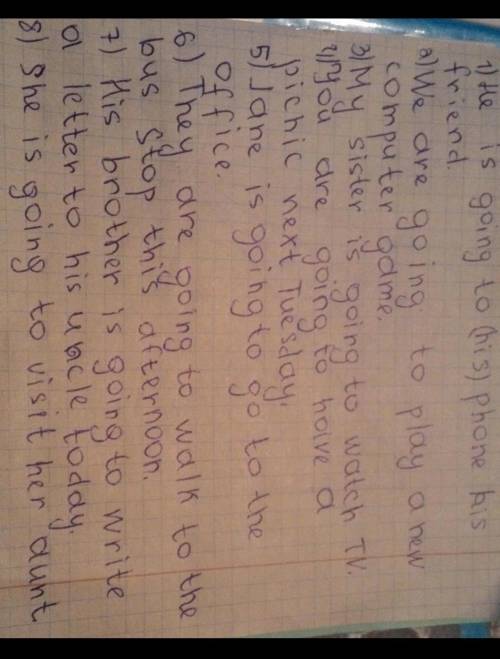 1) He is going to (his) phone his
friend
2) We are going to play a new
computer game.
3) My sister is going to watch TV.
4) You are going to haive a
pichic next Tuesday.
5) Jane is going to go to the
office.
6) They are going to walk to the
bus stop this afternoon.
7) His brother is going to write
a letter to his uncle today.
8) She is going to visit her aunt